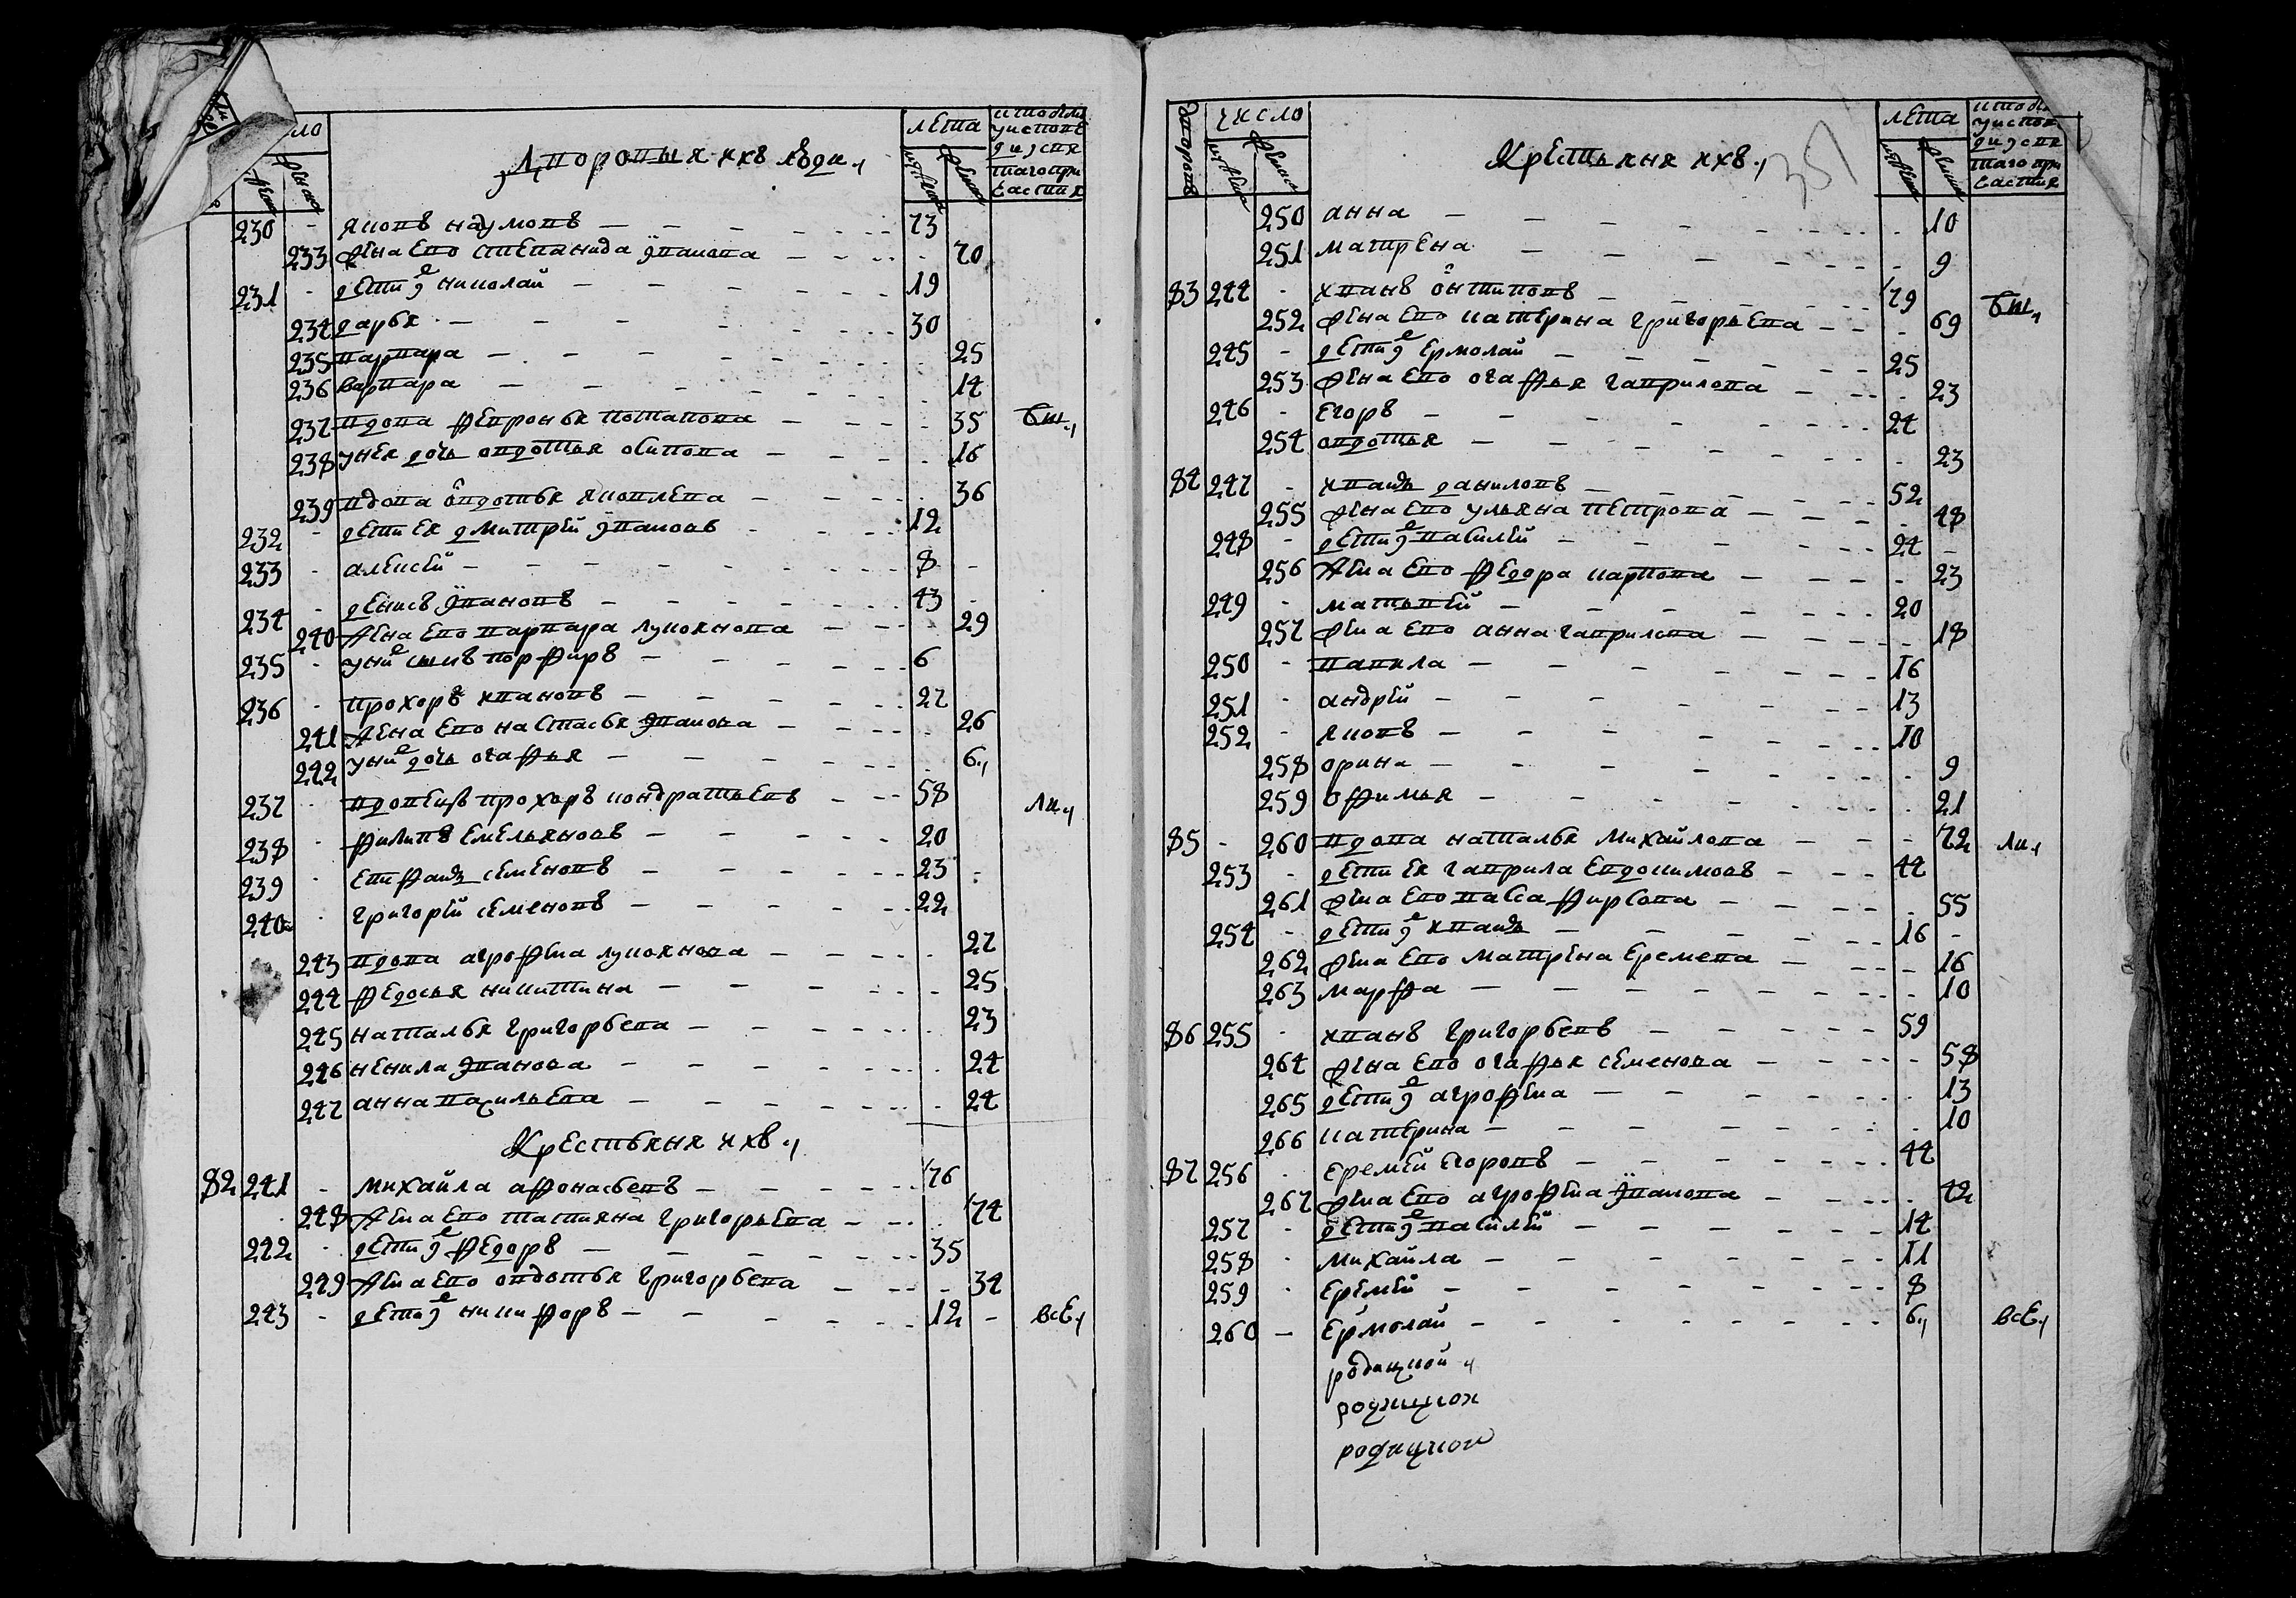 ло лета
Дворовыя ихъ люди
230 - яковъ наумовъ - 73
233 жена ево степанида іванова - 70
231 - дети еѵо николай - 19
234 дарья - 30
235 варвара - 25
236 варвара - 14
237 вдова февронья потапова - 35
238 унея дочь овдотья осипова - 16
239 вдова овдотья яковлева - 36
232 - дети ея дмитрей івановъ - 12
233 - алексей - 8
234 - денисъ івановъ - 43
240 жена ево варвара лукоянова - 29
235 - уние сынъ порфиръ - 6
236 - прохоръ ивановъ - 27
241 жена ево настасья іванова - 26
242 уние дочь огафья - 6
237 - вдовецъ прохоръ кондратьевъ - 58
238 - филипъ емельяновъ - 20
239 - епифанъ семеновъ - 23
240 - григорей семеновъ - 22
243 вдова агрофена лукоянова - 27
244 федосья никитина - 25
245 наталья григорьева - 23
246 ненила іванова - 24
247 анна васильева - 24
Крестьяня ихъ
82 241 - михайла афонасьевъ - 76
248 жена ево татияна григорьева - 74
242 - дети іе федоръ - 35
249 жена ево овдотья григорьева - 34
243 - дети іе никифоръ - 12 - все
число лета
Крестьяня ихъ 351
250 анна - 10
251 матрена - 9
83 244 - иванъ онтиповъ - 79
252 жена ево катерина григорьева - 69
245 - дети іе ермолай - 25
253 жена ево огафья гаврилова - 23
246 - егоръ - 24
254 овдотья - 23
84 247 - иванъ даниловъ - 52
255 жена ево ульяна петрова - 48
248 - дети іе василей - 24 -
256 жена ево федора карпова - 23
249 - матьвей - 20
257 жена ево анна гаврилова - 18
250 - вавила - 16
251 - андрей - 13
252 - яковъ - 10
258 орина - 9
259 офимья - 21
85 - 260 вдова наталья михайлова - 72
253 - дети ея гаврила евдокимовъ - 44
261 жена ево васса фирсова - 55
254 - дети іе иванъ - 16 -
262 жена ево матрена еремева - 16
263 марфа - 10
86 255 - иванъ григорьевъ - 59
264 жена ево огафья семенова - 58
265 дети іе агрофена - 13
266 катерина - 10
87 256 - еремей егоровъ - 44
267 жена ево агрофена іванова - 42
257 - дети іе василей - 14
258 - михайла - 11
259 - еремей - 8
260 - ермолай - 6 все